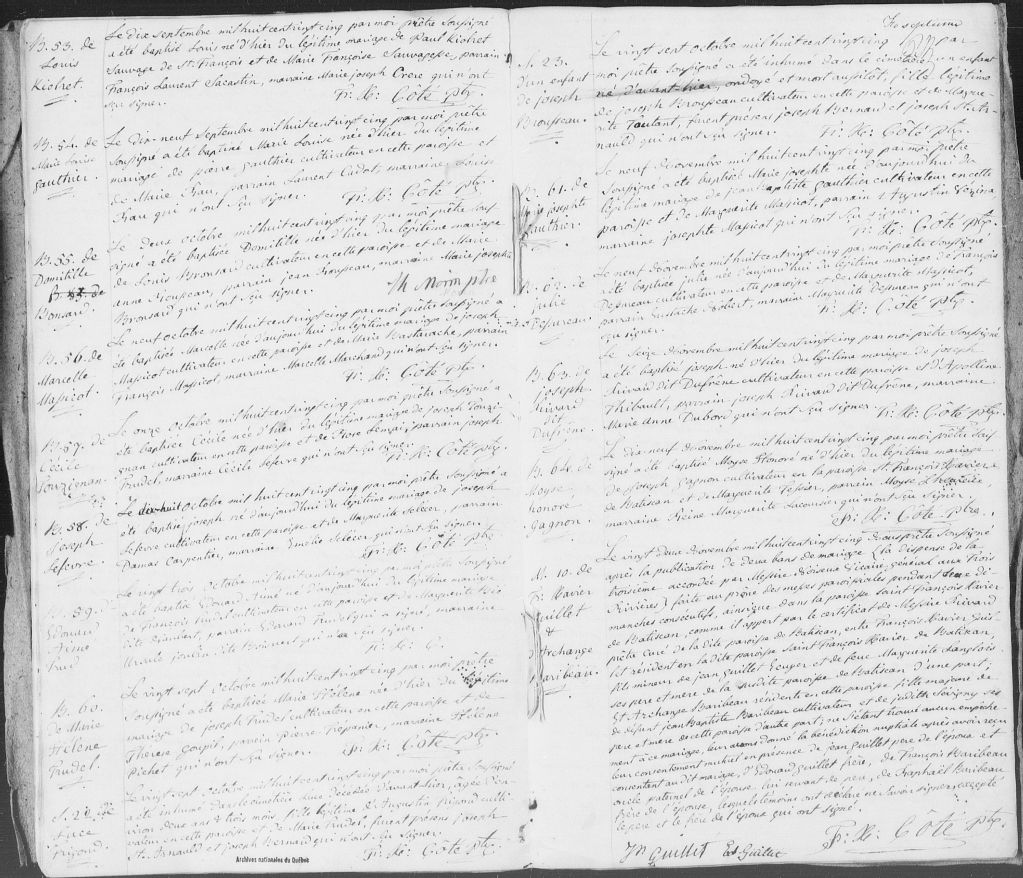 B. 53. de
Louis
Kiohet.
Le dix septembre mil huit cent vingt cinq par moi prêtre soussigné
a été baptisé Louis né d'hier du légitime mariage de Paul Kiohet
Sauvage de St. François et de Marie Françoise Sauvagesse, parrain
François Laurent marraine Marie joseph qui n'ont
sçu signer.
Fr: X: Côté ptre.
B. 54. de
Marie Louise
gauthier.
Le dix-neuf Septembre mil huit cent vingt cinq par moi prêtre
soussigné a été baptisée Marie Louise née d'hier du légitime
mariage de pierre gauthier cultivateur en cette paroisse et
de Marie parrain Laurent Cadot, marraine Louise
qui n'ont sçu signer.
Fr: X: Côté ptre.
B. 55. de
Domitille
Bonsard.
Le deux octobre mil huit cent vingt cinq par moi prêtre sous-
signé a été baptisée Domitille née d'hier du légitime mariage
de Louis Bronsard cultivateur en cette paroisse et de Marie
anne Brouseau, parrain jean Brouseau, marraine Marie josephte
Bronsard qui n'ont sçu signer.
B. 56. de
Marcelle
Massicot.
Le neuf octobre mil huit cent vingt cinq par moi prêtre soussigné a
été baptisée Marcelle née d'aujourd'hui du légitime mariage de joseph
Massicot cultivateur en cette paroisse et de Marie Bastarache, parrain
François Massicot, marraine Marcelle Marchand qui n'ont sçu signer.
Fr: X: Côté ptre.
B. 57. de
Cécile
Le onze Octobre mil huit cent vingt cinq par moi prêtre soussigné a
été baptisée Cécile née d'hier du légitime mariage de joseph
cultivateur en cette paroisse et de parrain joseph
Trudel, marraine Cécile Lefevre qui n'ont sçu signer.
Fr: X: Côté ptre.
B. 58. de
Joseph
Lefevre.
Le dix-huit octobre mil huit cent vingt cinq par moi prêtre soussigné a
été baptisé joseph né d'aujourd'hui du légitime mariage de joseph
Lefevre cultivateur en cette paroisse et de Marguerite parrain
Damas Carpentier, marraine Emelie qui n'ont sçu signer.
Fr: X: Côté ptre.
B. 59. d
Edouard
Aimé
Trud
Le vingt trois octobre mil huit cent vingt cinq par moi prêtre soussigné
a été baptisé Edouard Aimé né d'aujourd'hui du légitime mariage
de François Trudel cultivateur en cette paroisse et de Marguerite
parrain Edouard Trudel qui a signé, marraine
qui n'a sçu signer.
B. 60.
de Marie
Hélène
Trudel.
Le vingt sept octobre mil huit cent vingt cinq par moi prêtre
soussigné a été baptisée Marie Hélène née d'hier du légitime
mariage de joseph Trudel cultivateur en cette paroisse et de
Thérèse parrain Pierre Trépanier, marraine Hélène
Pichet qui n'ont sçu signer.
Fr: X: Côté ptre.
S. 22. de
Luce
Rivard.
Le vingt sept octobre mil huit cent vingt cinq par moi prêtre soussigné
a été inhumé dans le cimetière Luce décédée d'avant-hier, âgée d'en-
viron deux ans & trois mois fille légitime d'Augustin Rivard culti-
vateur en cette paroisse et de Marie Trudel, furent présens joseph
St. Arnauld et joseph Bernard qui n'ont sçu signer.
Fr: X: Côté ptre.
Archives nationales du Québec
S. 23.
d'un enfant
de joseph
Brouseau.
Le vingt sept octobre mil huit cent vingt cinq par
moi prêtre soussigné a été inhumé dans le cimetière un enfant
né d'avant-hier, ondoyé et mort aussitôt, fille légitime
de joseph Brouseau cultivateur en cette paroisse et de Margue-
rite Tautant, furent présens joseph Bernard et joseph St. Ar-
nauld qui n'ont sçu signer.
Fr: X: Côté ptre.
B. 61. de
Marie josephte
gauthier.
Le neuf Novembre mil huit cent vingt cinq par moi prêtre
soussigné a été baptisée Marie josephte née d'aujourd'hui du
légitime mariage de jean Baptiste gauthier cultivateur en cette
paroisse et de Marguerite Massicot, parrain Augustin
marraine josephte Massicot qui n'ont sçu signer.
Fr: X: Côté ptre.
B. 62. de
julie
Desureau.
Le neuf Novembre mil huit cent vingt cinq par moi prêtre soussigné
a été baptisée julie née d'aujourd'hui du légitime mariage de François
Desureau cultivateur en cette paroisse et de Marguerite Massicot,
parrain Eustache marraine Marguerite Desureau qui n'ont
sçu signer.
Fr: X: Côté ptre.
B. 63. de
joseph
Rivard
dit
Dufrêne.
Le seize Novembre mil huit cent vingt cinq par moi prêtre soussigné
a été baptisé joseph né d'hier du légitime mariage de joseph
Rivard dit Dufrêne cultivateur en cette paroisse et d'Apolline
Thibault, parrain joseph Rivard dit Dufrêne, marraine
Marie anne Dubord qui n'ont sçu signer.
Fr: X: Côté ptre.
B. 64. de
Moyse
honoré
Gagnon.
Le dix neuf Novembre mil huit cent vingt cinq par moi prêtre sous-
signé a été baptisé Moyse Honoré né d'hier du légitime mariage
de joseph Gagnon cultivateur en la paroisse St. François Xavier
de Batiscan et de Marguerite Tessier, parrain Moyse
marraine Reine Marguerite Lacoursier qui n'ont sçu signer.
Fr: X: Côté ptre.
M. 10. de
Fr. Xavier
Guillet
&
d'Archange
Baribeau.
Le vingt deux Novembre mil huit cent vingt cinq nous prêtre soussigné
après la publication de deux bans de mariage (la dispense de la
troisieme accordée par Messire Noiseux Vicaire général aux trois
Rivières) faite au prône des messes paroissiales pendant deux di-
manches consécutifs, ainsi que dans la paroisse saint François Xavier
de Batiscan, comme il appert par le certificat de Messire Rivard
prêtre Curé de la dite paroisse de Batiscan, entre François Xavier Guil-
let résident en la dite paroisse Saint François Xavier de Batiscan,
fils mineur de jean Guillet Ecuyer et de feue Marguerite Langlois
ses père et mère de la susdite paroisse de Batiscan d'une part;
Et Archange Baribeau résidente en cette paroisse fille majeure de
de défunt jean Baptiste Baribeau cultivateur et de judith ses
père et mère de cette paroisse d'autre part; ne s'étant trouvé aucun empêche-
ment à ce mariage, leur avons donné la bénédiction nuptiale après avoir reçu
leur consentement mutuel en présence de jean Guillet père de l'époux et
consentant au dit mariage, d'Edouard Guillet frère, de François Baribeau
oncle paternel de l'épouse lui servant de père, de Raphaël Baribeau
frère de l'épouse, lesquels témoins ont déclaré ne savoir signer, excepté
le père et le frère de l'époux qui ont signé.
Jn Guillet Ed Guillet
Fr: X: Côté ptre.